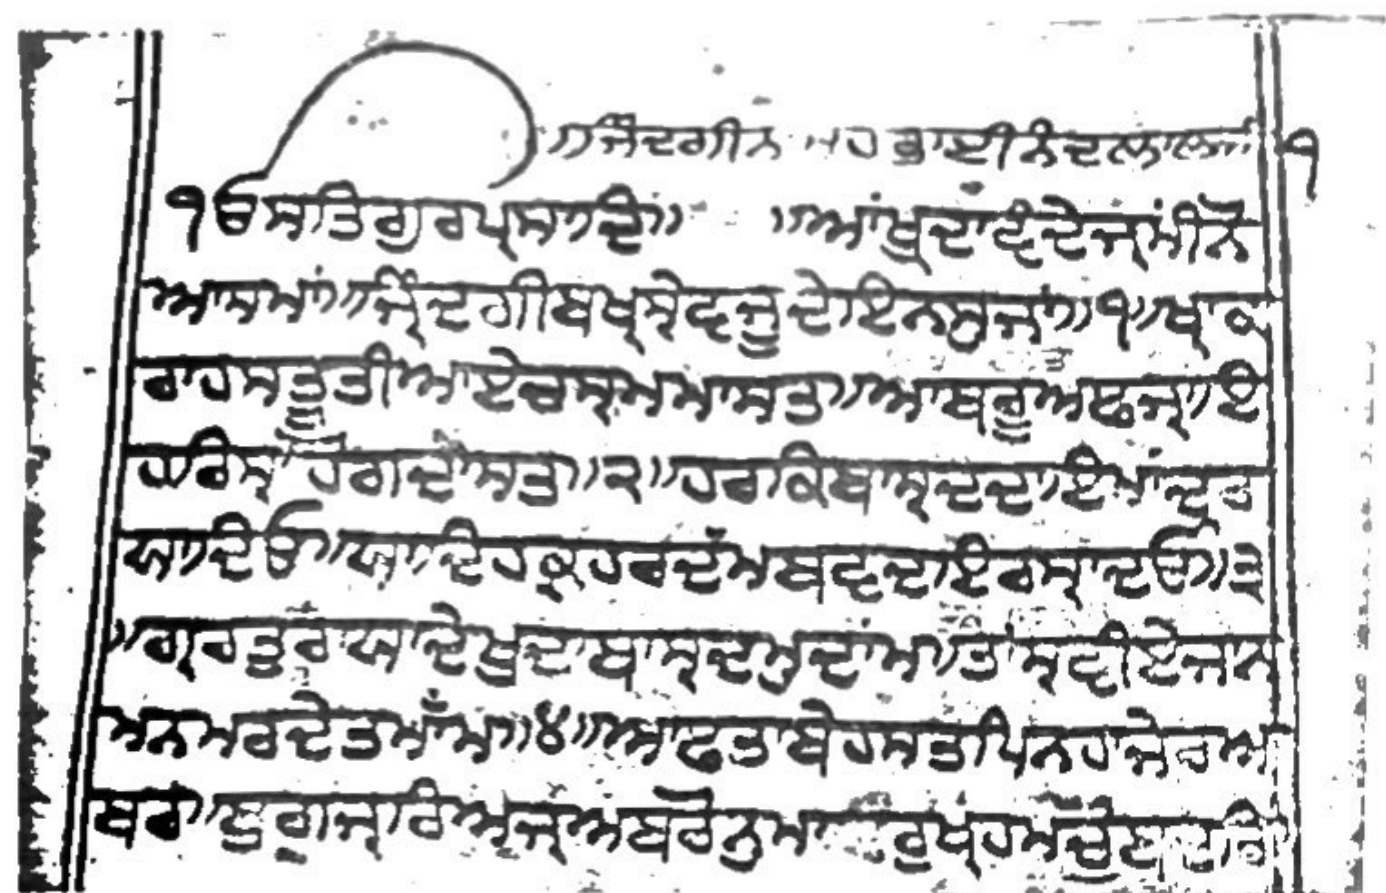 ॥ਜਿੰਦਗੀਨ
੧
ੴਸਤਿਗੁਰਪ੍ਰਸਾਦਿ॥ ॥ਆਂਖੁਦਾਇਦੇਜ਼ਮੀਨੋ
ਆਸਮਾਂ॥ਜ਼ਿੰਦਗੀਬਖ਼ਸ਼ੇਵਜੂਦੇਇਨਸੁਜਾਂ॥੧॥ਖ਼ਾਕ
ਰਾਹਸਤੂਤੀਆਏਚਸ਼ਮਮਾਸਤ॥ਆਬਰੂਅਫਜ਼ਾਇ
ਹਰਿਸ਼ਾਹੋਗਦੋਸਤ॥੨॥ਹਰਕਿਬਾਸ਼ਦਦਾਇਮਾਂਦਰ
ਯਾਦਿਓ॥ਯਾਦਿਹਕਹਰਦੰਮਬਵਦਾਇਰਸ਼ਾਦਓ॥੩
॥ਗਰਤੁਰਯਾਦੇਖੁਦਾਬਾਸ਼ਦਮੁਦਾਂਮ॥ਤਾਂਸ਼ਵੀਏਜਾਨ
ਮਨਮਰਦੇਤਮਾਂਮ॥੪॥ਆਫਤਾਬੇਹਸਤਪਿਨਹਾਂਜ਼ੇਰਅ
ਬਰ॥ਬੁਗਜ਼ਰਿਅਜ਼ਅਬਰੋਨੁਮਾ